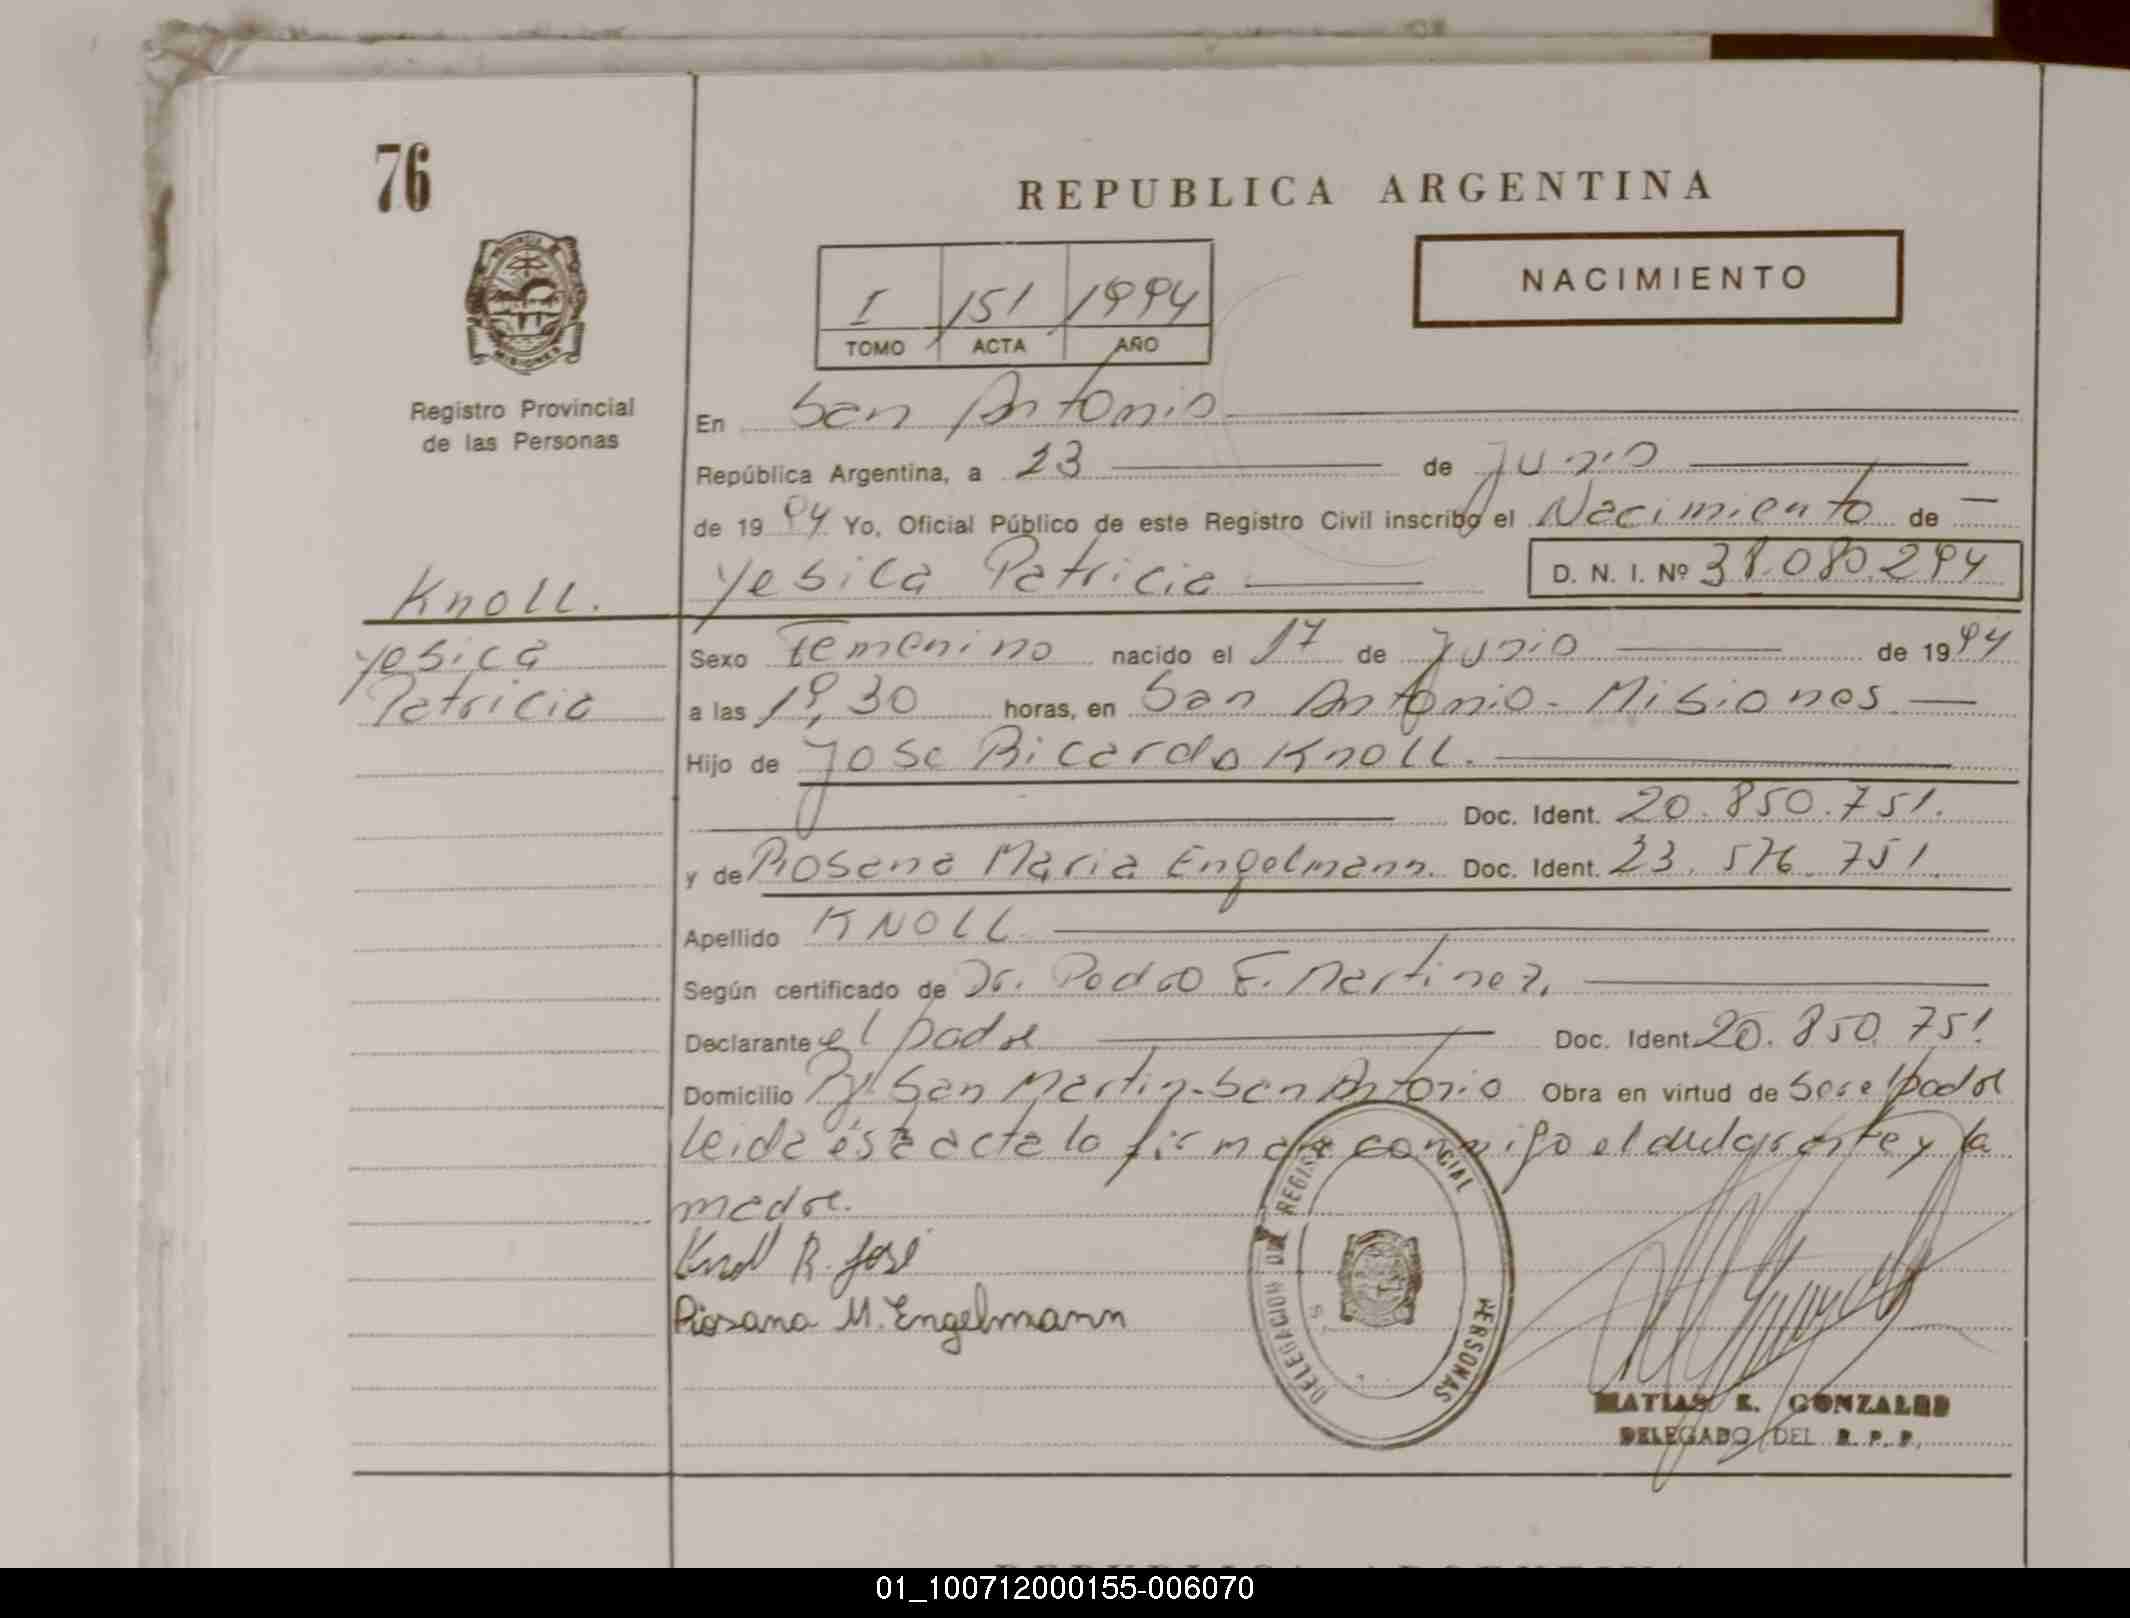 76
REPUBLICA ARGENTINA
NACIMIENTO
I 151 1994
TOMO ACTA AÑO
PROVINCIA DE
MISIONES
Registro Provincial
de las Personas
En San Antonio
República Argentina, a 23 de Junio
de 1994 Yo, Oficial Público de este Registro Civil inscribo el Nacimiento de
Yesica Patricia D. N. I. Nº 38.080.294
Knoll.
Yesica
Patricia
Sexo Femenino nacido el 17 de Junio de 1994
a las 19,30 horas, en San Antonio - Misiones
Hijo de Jose Ricardo Knoll.
Doc. Ident. 20.850.751.
y de Rosana Maria Engelmann. Doc. Ident. 23.576.751.
Apellido KNOLL
Según certificado de Dr. Pedro E. Martinez,
Declarante el padre Doc. Ident. 20.850.751
Domicilio San Martin - San Antonio Obra en virtud de ser el padre
leida ésta acta la firman conmigo el declarante y la
madre.
Knoll R. José
Rosana M. Engelmann
DELEGACION DEL REGIST CIAL PERSONAS
MATIAS E. GONZALEZ
DELEGADO DEL R. P. P.
01_100712000155-006070